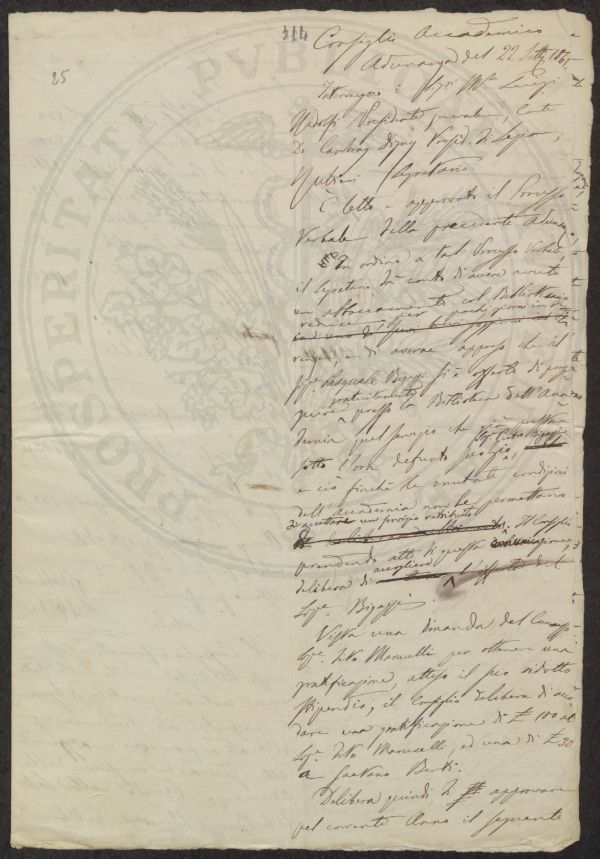 414
25
Consiglio Accademico
Adunanza del 22 Sett. 1861.
Intervengono i Sigri Mse Luigi
Ridolfi Presidente, Conte
De Cambray Digny Presid. di Sezione,
Segretario.
È letto e approvato il Processo
Verbale della precedente Adunanza
In ordine a tal Processo Verbale,
il Segretario dà conto di avere avuto
un abboccamento col Bibliotecario
reduce, per pochi giorni in
e di averne appreso che il
Sigr Pasquale Bigazzi si è offerto di
gratuitamente
presso la Biblioteca dell'Acca
demia quel servizio che già prestava
sotto l'ora defunto
e ciò finchè le mutate condizioni
dell'Accademia non le permettano
di accettare un servizio retribuito. Il Consiglio
prendendo atto di questa comunicazione,
delibera di accogliere l'offerta del
Sigr. Bigazzi.
Vista una dimanda del Commesso
Sigr. Tito Marucelli per ottenere una
gratificazione, atteso il suo ridotto
stipendio, il Consiglio delibera di acco
dare una gratificazione di £ 100 al
Sigr. Tito Marucelli, ed una di £ 30
a Gaetano Berti.
Delibera quindi di approvare
pel corrente Anno il seguente
PROSPERITATI PVBLICAE